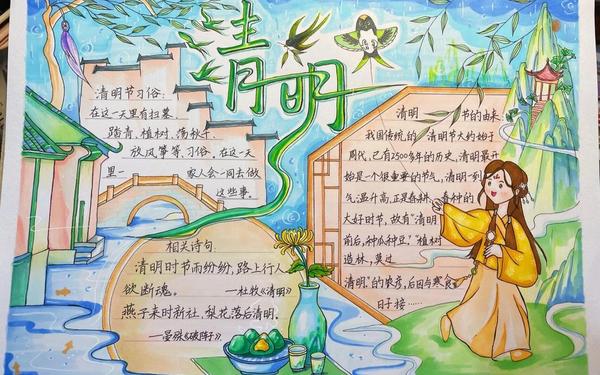 清明
清明节习俗:
在这一天里有扫墓、
踏青、植树、荡秋千、
放风筝等习俗,在这一天
里一 家人会一同去做
这些事。
相关诗句
清明时节雨纷纷,路上行人
欲断魂。 —杜牧《清明》
燕子来时新社,梨花落后清明。
—晏殊《破阵子》
清明 节的由来
我国传统的 清明节大约始于
周代,已有2500多年的历史,清明最开
始是一个很重要的节气,清明一到
气温升高,正是春耕 春种的
大好时节,故有"清明
前后,种瓜种豆。""植树
造林,莫过
清明"的农彦,后因与寒食
日子接……